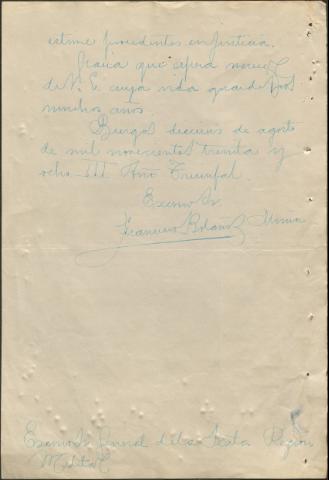 estime procedentes en Justicia.
Gracia que espera merecer
de V. E. cuya vida guarde Dios
muchos años.
Burgos dieciseis de agosto
de mil novecientos treinta y
ocho - III Año Triunfal.
Excmo Sr.
Francisco Bolaños
Excmo Sr General de la Sexta Región
Militar